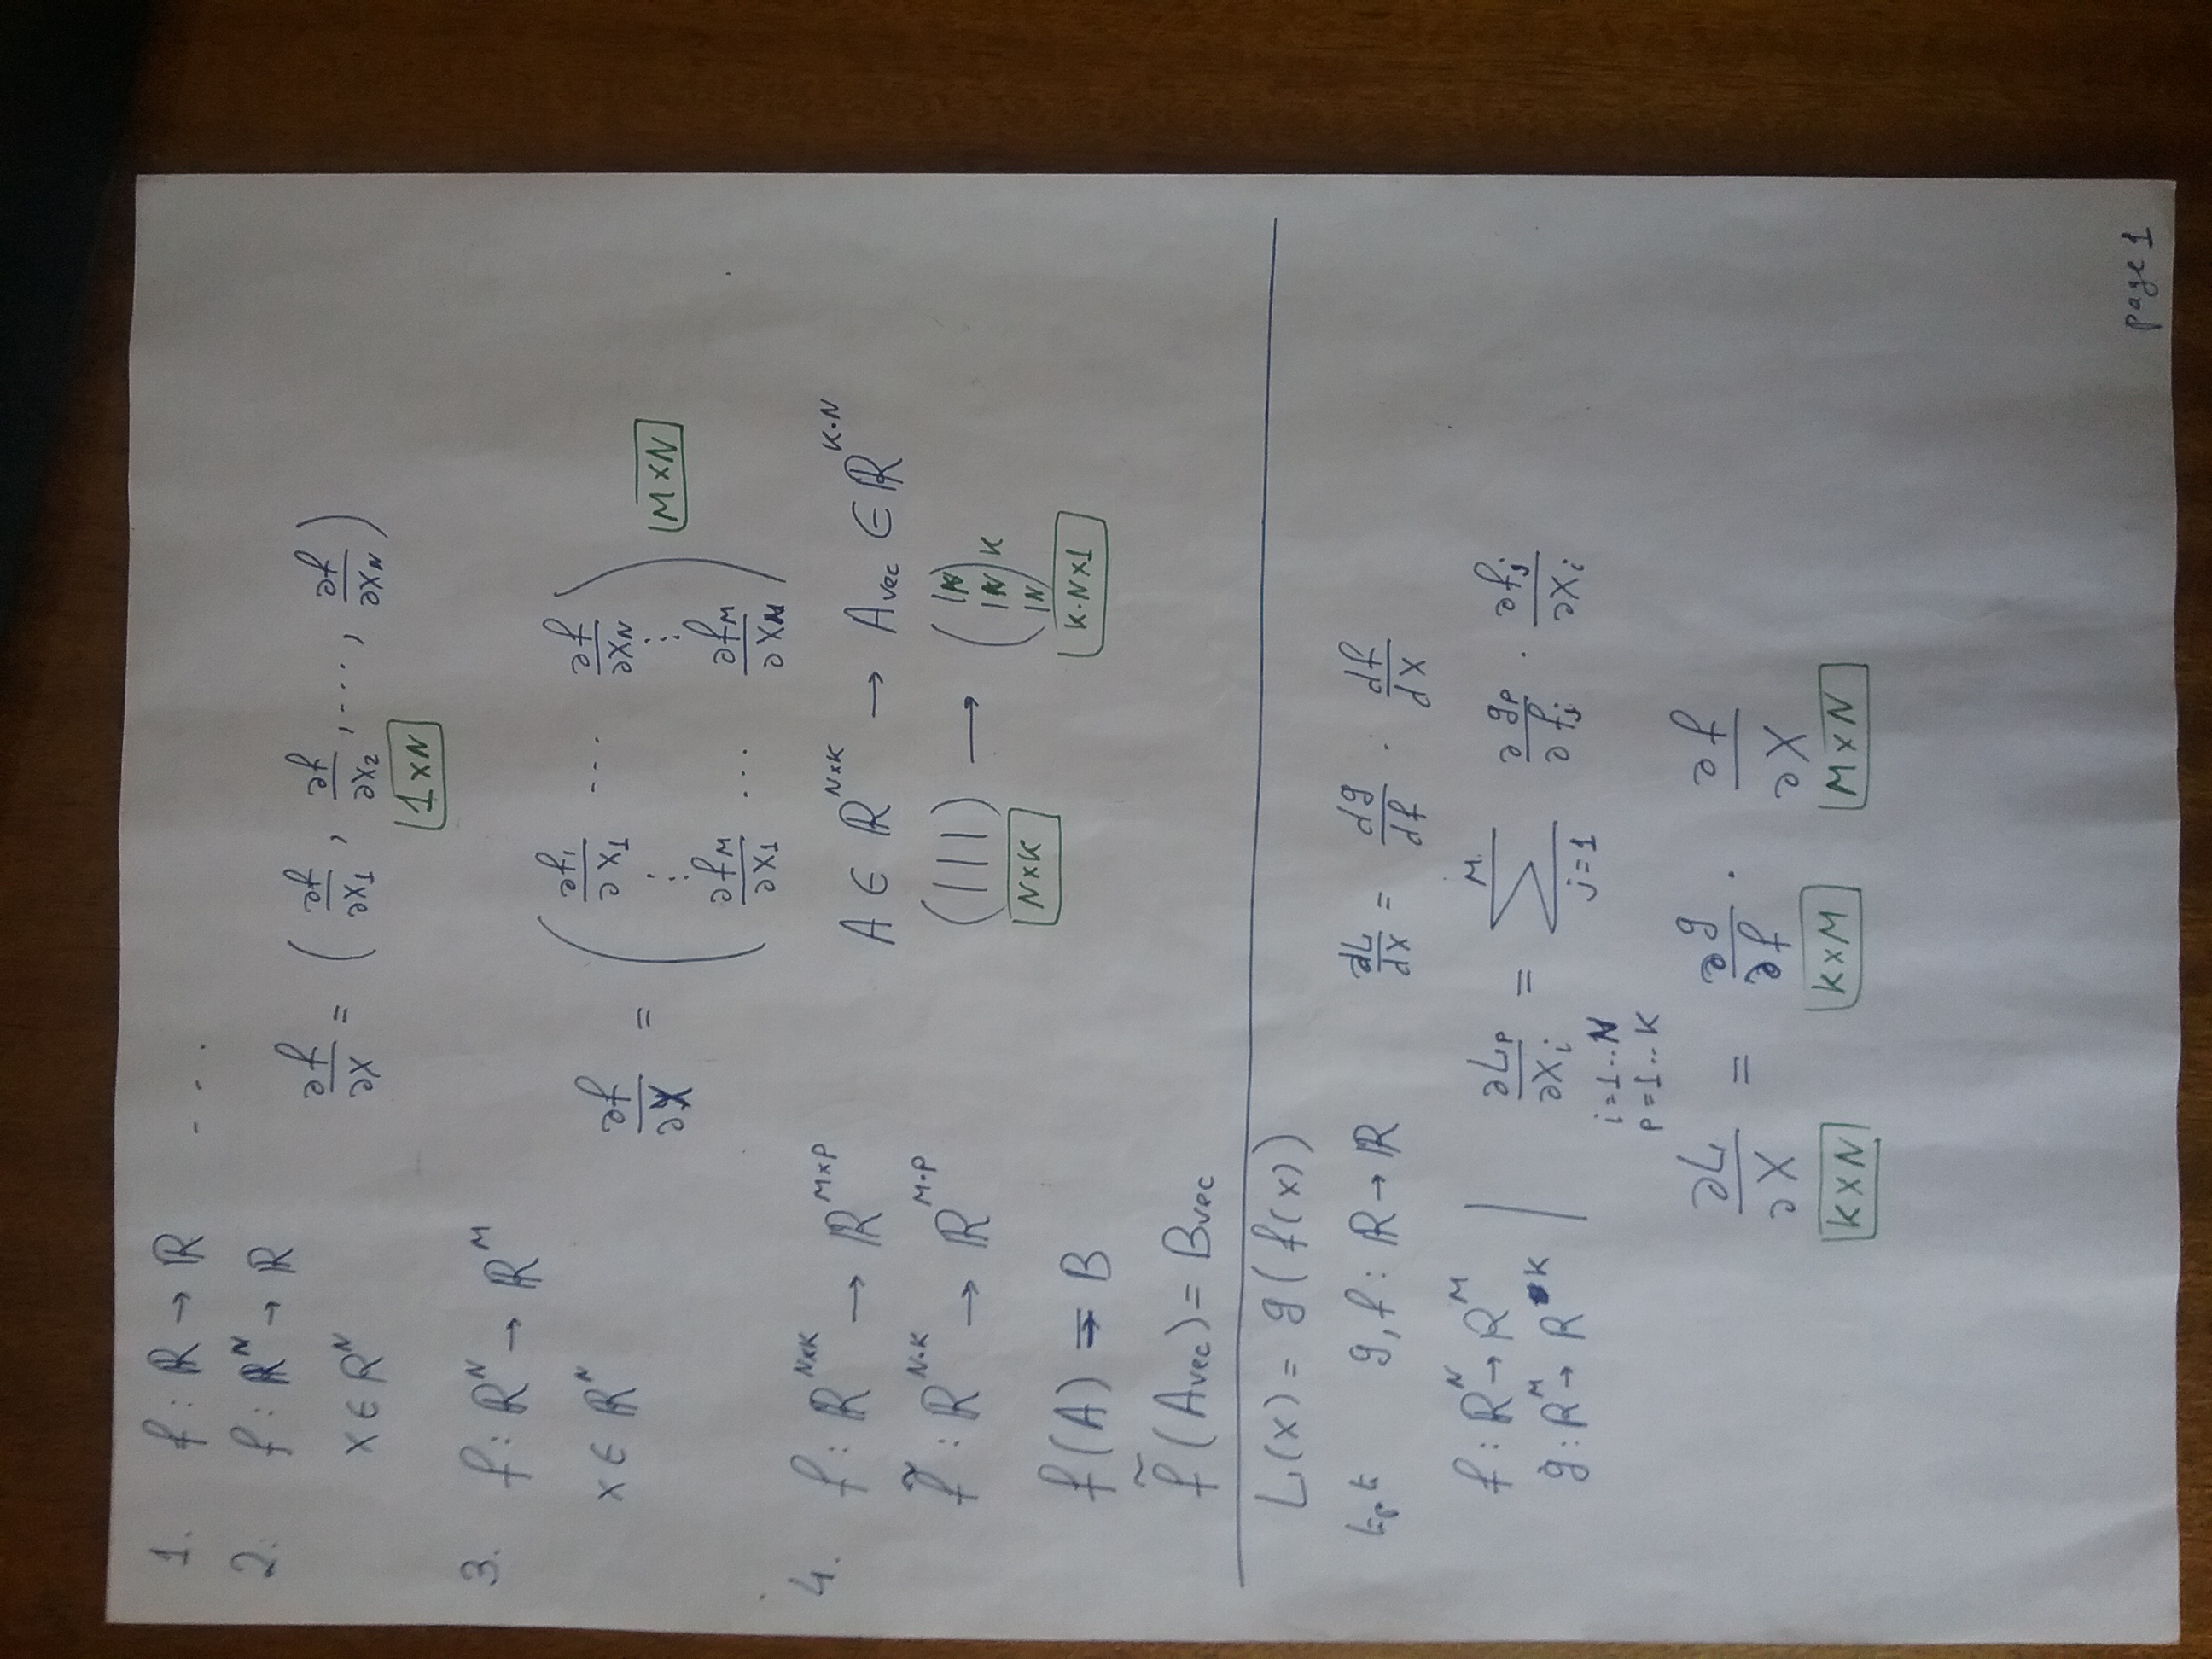 1. f : ℝ → ℝ - . .
2. f : ℝ^N → ℝ ∂f/∂x = ( ∂f/∂x_1 , ∂f/∂x_2 , ...., ∂f/∂x_N )
x ∈ ℝ^N 1×N
3. f : ℝ^N → ℝ^M ∂f/∂x = ( ∂f_1/∂x_1 ... ∂f/∂x_N
⋮ ⋮
x ∈ ℝ^N ∂f_M/∂x_1 ... ∂f_M/∂x_N ) M×N
4. f : ℝ^{N×K} → ℝ^{M×P} A ∈ ℝ^{N×K} → A_vec ∈ ℝ^{K·N}
f̃ : ℝ^{N·K} → ℝ^{M·P} ( | | | ) → ( |N |N |N ) K
N×K K·N×1
f(A) = B
f̃(A_vec) = B_vec
L(x) = g(f(x))
g, f : ℝ → ℝ dL/dx = dg/df · df/dx
f : ℝ^N → ℝ^M | ∂L_p/∂x_i = ∑_{j=1}^{M} ∂g_p/∂f_j · ∂f_j/∂x_i
g : ℝ^M → ℝ^K i=1..N
p=1..K
∂L/∂x = ∂g/∂f · ∂f/∂x
K×N K×M M×N
page 1